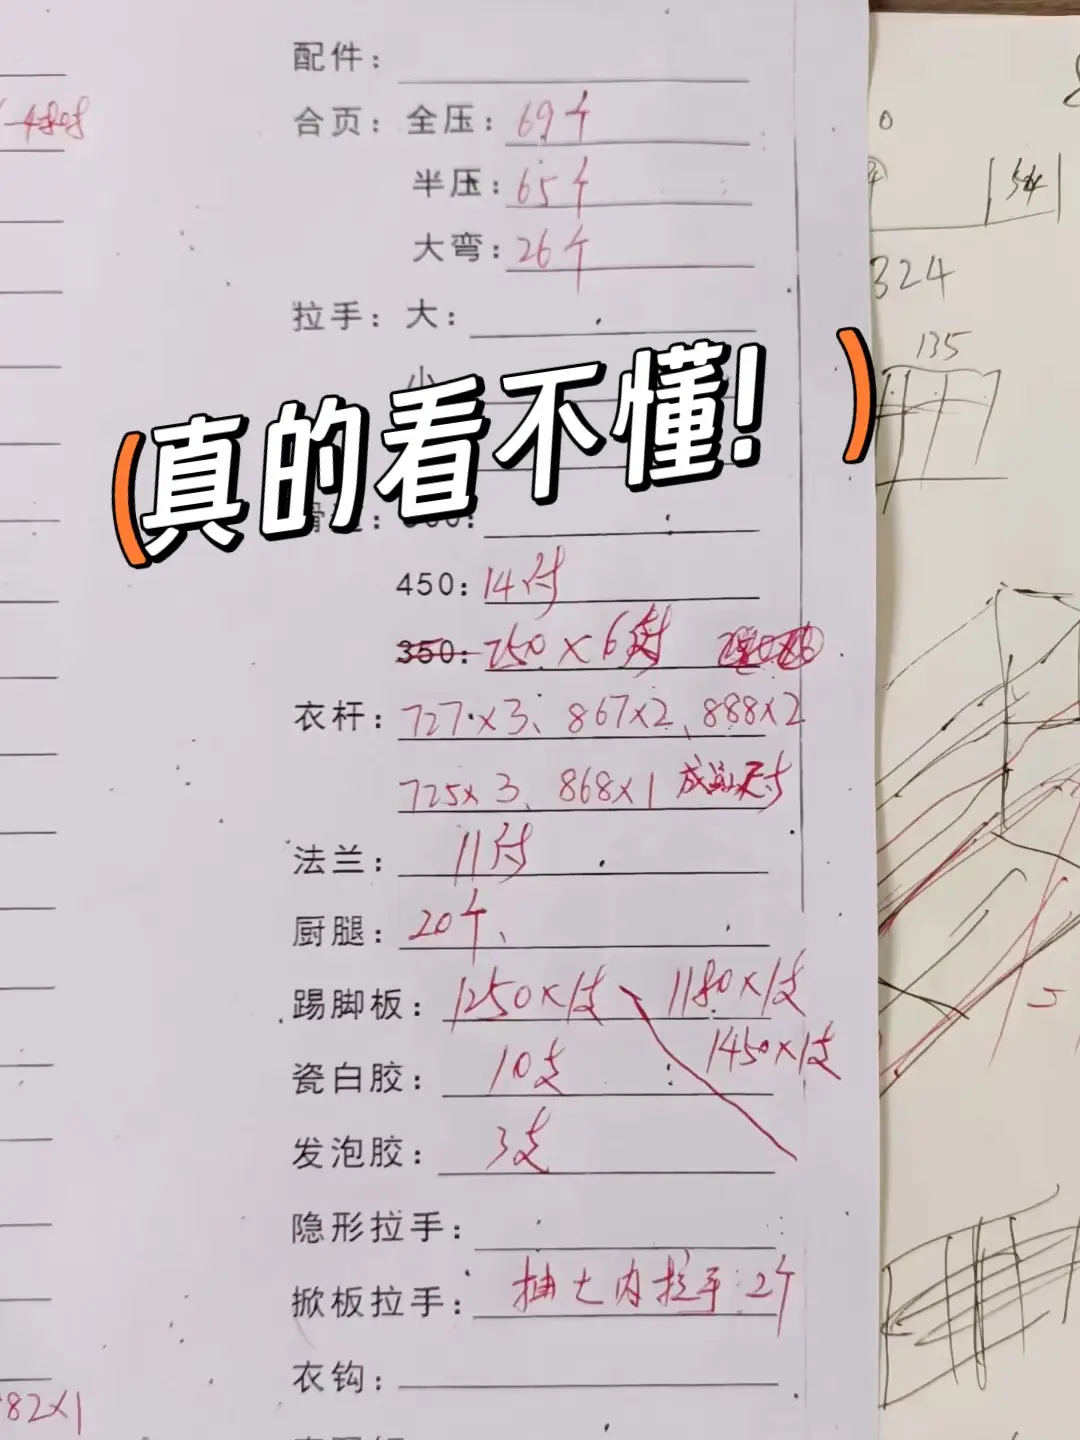 配件：
合页：全压：69个
半压：65个
大弯：26个
拉手：大：
小
(真的看不懂！)
450：14付
350：250×6付
衣杆：727×3、867×2、888×2
725×3、868×1 成品尺寸
法兰：11付
厨腿：20个、
踢脚板：1250×1支 1180×1支
1450×1支
瓷白胶：10支
发泡胶：3支
隐形拉手：
掀板拉手：抽七内拉手：2个
衣钩：
82×1
0
54
324
135
5